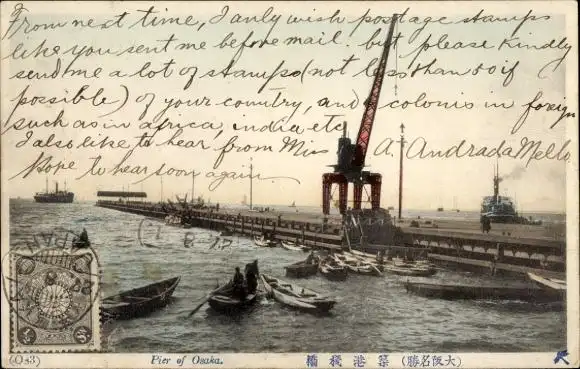 From next time, I anly wish postage stamps
like you sent me before mail. but please kindly
send me a lot of stamps (not less than 50 if
possible) of your country, and colonis in foreign
such as in africa, india etc
I also like to hear from Miss A. Andrada Mello.
Hope to hear soon again.
(O43) Pier of Osaka. 築港棧橋 (大阪名勝)